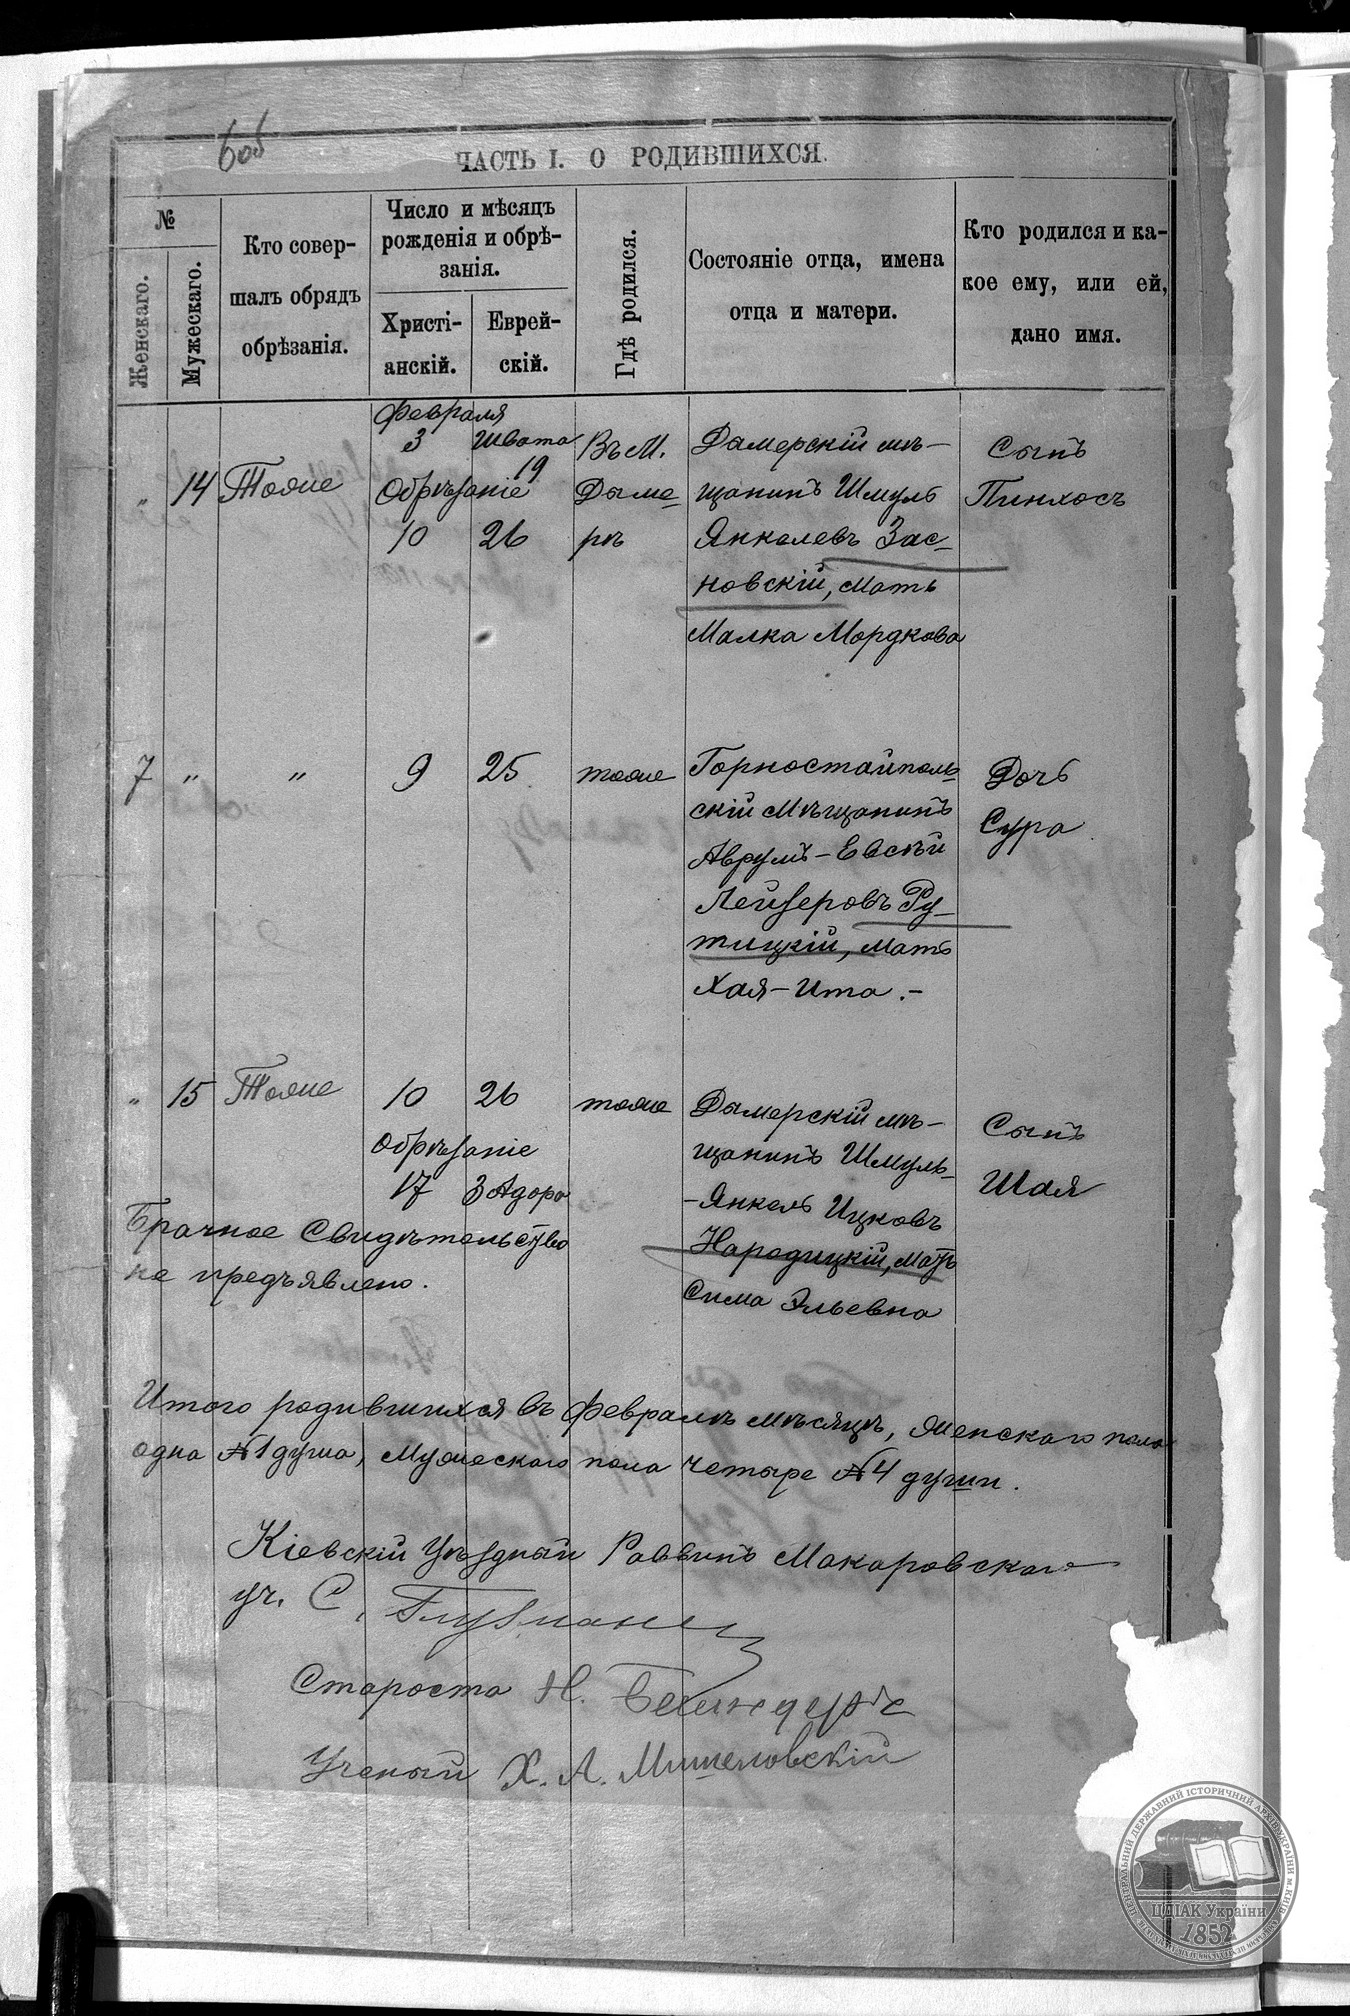 6об
ЧАСТЬ I. О РОДИВШИХСЯ.
№
Женскаго.
Мужескаго.
Кто совер-
шалъ обрядъ
обрѣзанія.
Число и мѣсяцъ
рожденія и обрѣ-
занія.
Христі-
анскій.
Еврей-
скій.
Гдѣ родился.
Состояніе отца, имена
отца и матери.
Кто родился и ка-
кое ему, или ей,
дано имя.
Февраля
" 14 Тоже
3 Швата 19
Обрѣзаніе
10 26
Въ М.
Дыме
рѣ
Дамерскій мѣ-
щанинъ Шмуль
Янкелевъ Зас-
новскій, мать
Малка Мордкова
Сынъ
Пинхосъ
7 " " 9 25 тоже
Горностайполь-
скій мѣщанинъ
Аврумъ-Евсѣй
Лейзеровъ Ру-
тицкій, мать
Хая-Ита.-
Дочь
Сура
" 15 Тоже 10 26 тоже
Обрѣзаніе
17 3 Адара
Дымерскій мѣ-
щанинъ Шмуль-
-Янкель Ицковъ
Народицкій, мать
Сима Эльевна
Сынъ
Шая
Брачное Свидѣтельство
не предъявлено.
Итого родившихся въ Февралѣ мѣсяцѣ, женскаго пола
одна №1 душа, Мужескаго пола четыре №4 души.
Кіевскій Уѣздный Раввинъ Макаровскаго
уч. С.
Староста Н.
Ученый Х. А. Мишеловскій
ЦЕНТРАЛЬНИЙ ДЕРЖАВНИЙ ІСТОРИЧНИЙ АРХІВ УКРАЇНИ М. КИЇВ
ЦДІАК України
1852